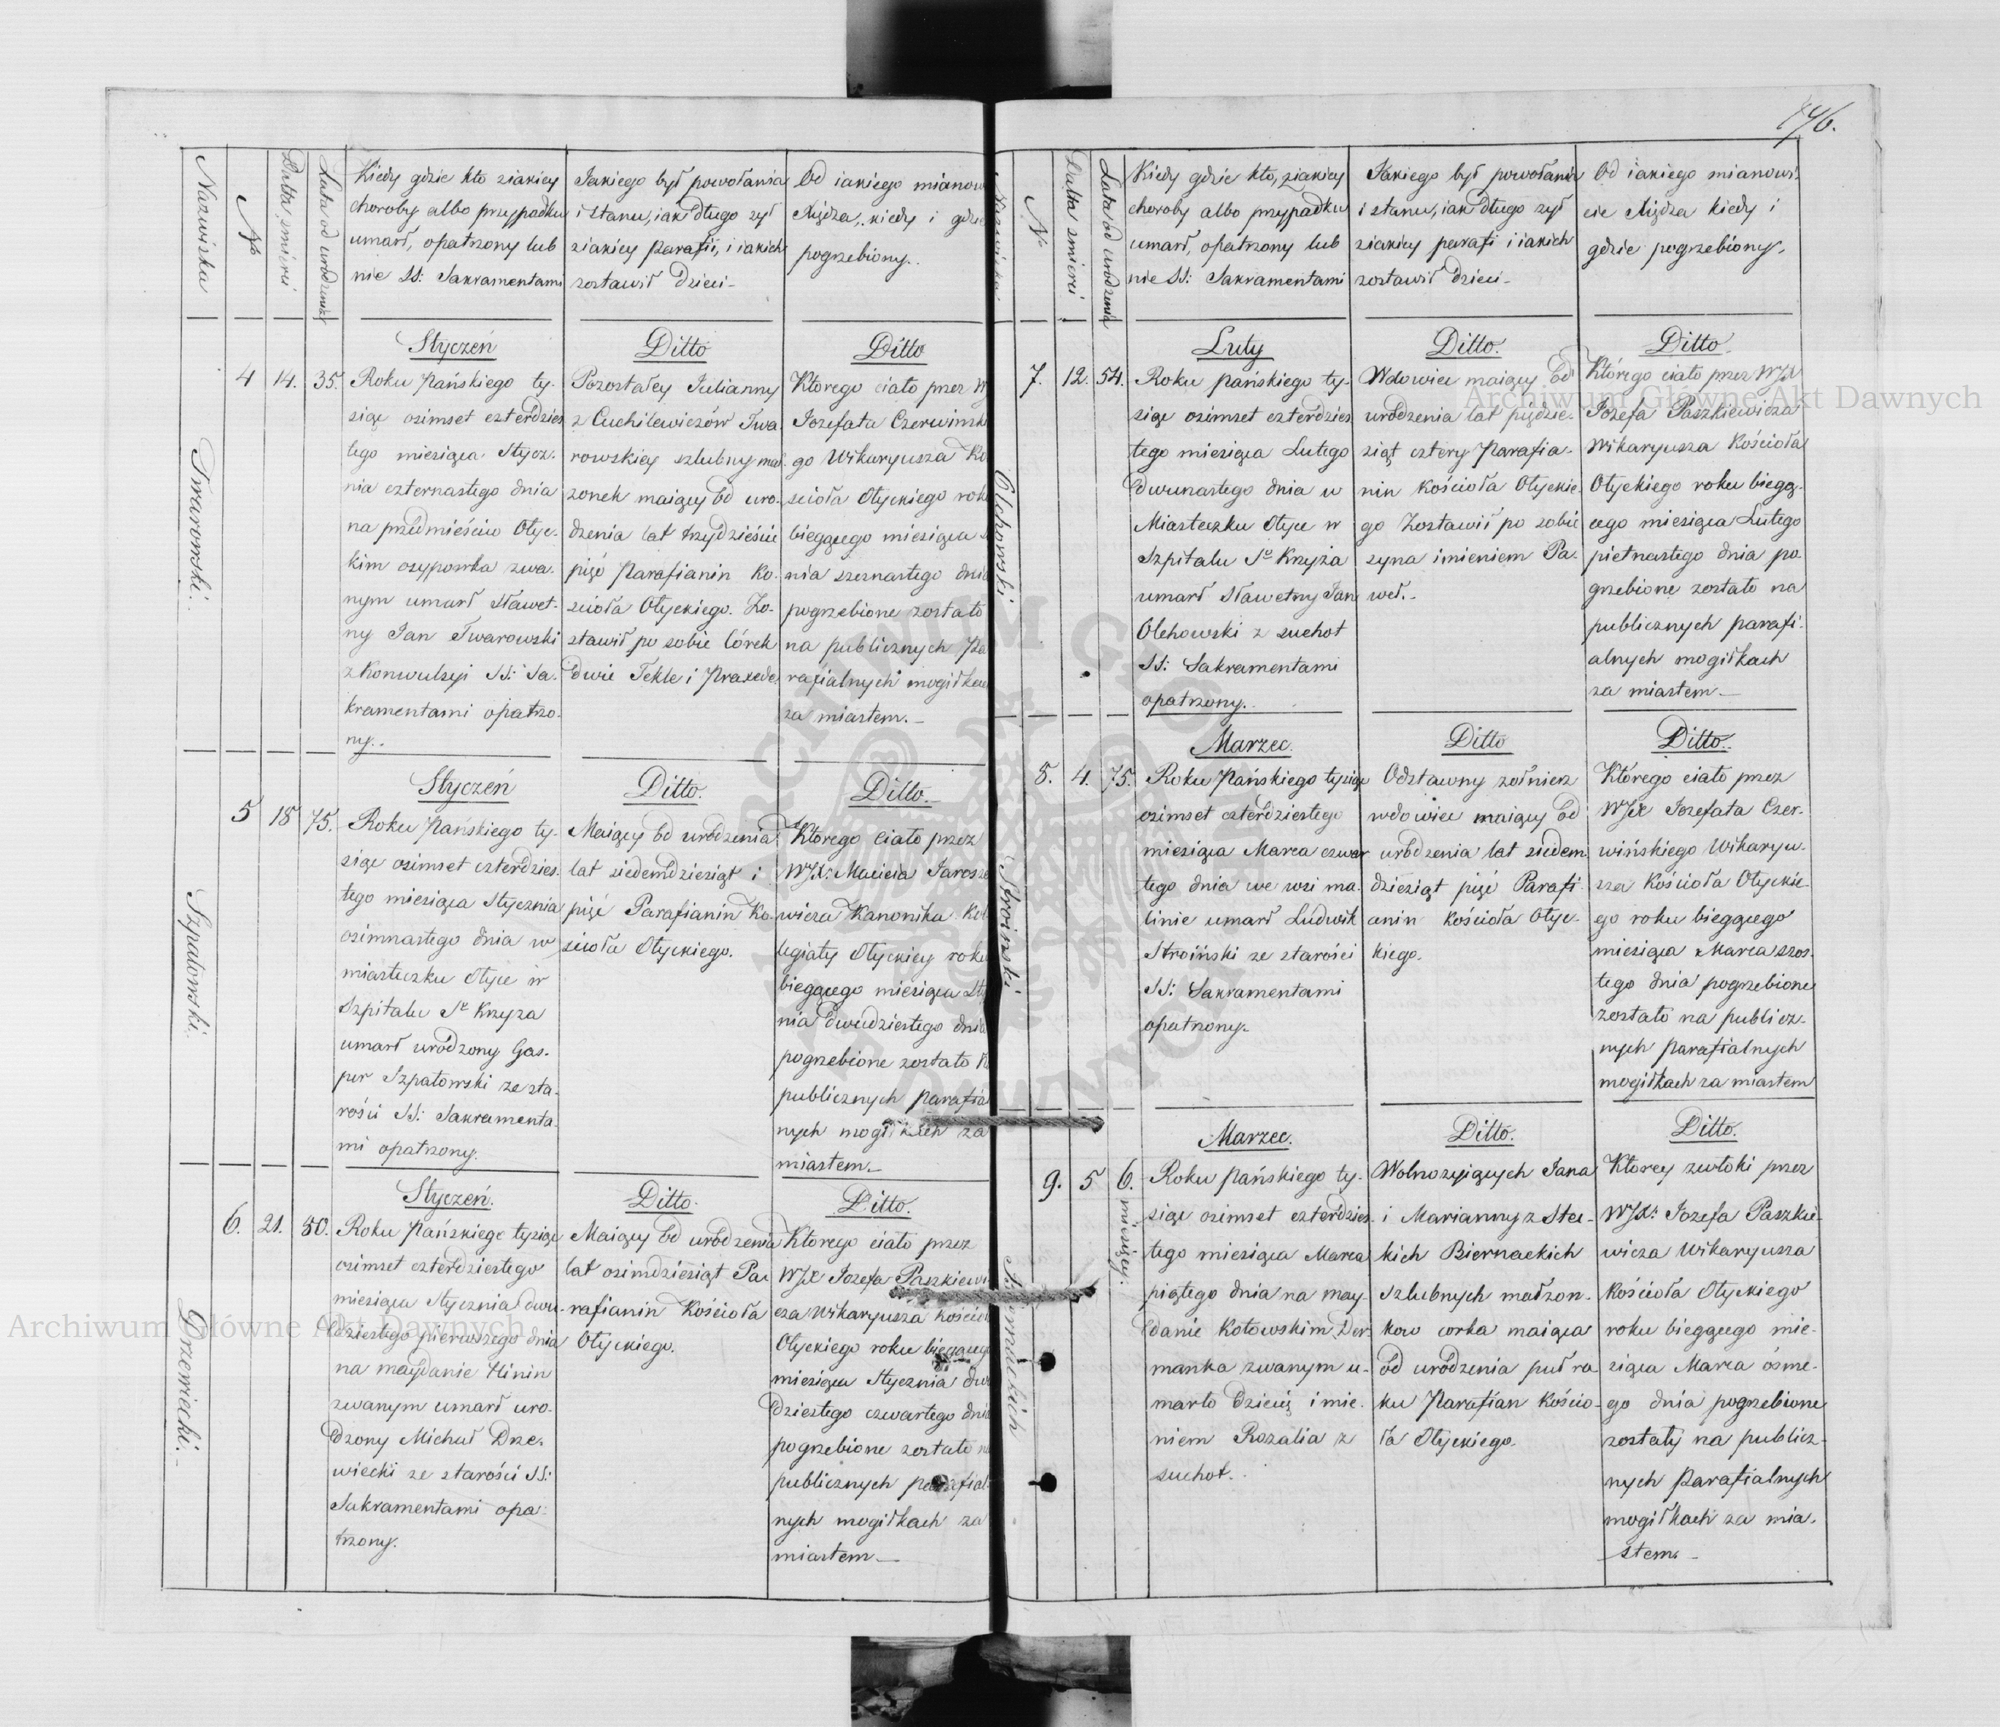 746.
Nazwisku
№
Datta smierci
Lata od urodzenia
Kiedy gdzie kto ziakiey
choroby albo przypadku
umarł, opatrzony lub
nie SS: Sakramentami
Jakiego był powołania
i stanu, iak długo zył
ziakiey parafii, i iakich
zostawił dzieci -
Od iakiego mianow
Xiędza, kiedy i gdzie
pogrzebiony.
Twarowski.
4
14.
35.
Styczeń
Roku Pańskiego ty-
siąc osimset czterdzies
tego miesiąca Stycz-
nia czternastego dnia
na przedmieściu Olyc-
kim osypowka zwa-
nym umarł sławet-
ny Jan Twarowski
z Konwulsyi SS: Sa-
kramentami opatrzo-
ny.
Ditto
Pozostałey Julianny
z Cuchilewiczów Twa-
rowskiey szlubny mał-
zonek maiący od uro-
dzenia lat trzydzieście
pięć Parafianin Ko-
scioła Olyckiego. Zo-
stawił po sobie Córek
dwie Tekle i Praxede
Ditto
Ktorego ciało przez W
Jozefata Czerwinsk
go Wikaryusza Ko
scioła Olyckiego roku
bieggcego miesiąca
nia szesnastego dnia
pogrzebione zostało
na publicznych Pa
rafialnych mogiłkach
za miastem.-
Szpatowski.
5
18
75.
Styczeń
Roku Pańskiego ty-
siąc osimset czterdzies
tego miesiąca Stycznia
osimnastego dnia w
miasteczku Olyce w
Szpitalu Sº Krzyza
umarł urodzony Gas-
per Szpatowski ze sta-
rości SS: Sakramenta
mi opatrzony.
Ditto.
Maiący od urodzenia
lat siedemdziesiąt i
pięć Parafianin Ko-
scioła Olyckiego.
Ditto.
Ktorego Ciało przez
WJX: Macieia Jarosze
wicza Kanonika Kol
legiaty Olyckiey roku
biegącego miesiąca Sty
nia dwudziestego dnia
pogrzebione zostało n
publicznych parafia
nych mogiłkach za
miastem.-
Drzewiecki.
6.
21.
50.
Styczeń.
Roku Pańskiego tysiąc
osimset czterdziestego
miesiąca Stycznia dwu-
dziestego pierwszego dnia
na maydanie Hinin
zwanym umarł uro-
dzony Michał Drze-
wiecki ze starości SS:
Sakramentami opa-
trzony.
Ditto.
Maiący od urodzenia
lat osimdziesiąt Pa
rafianin Kościoła
Olyckiego.
Ditto.
Ktorego ciało przez
WJX Jozefa Paszkiewi
cza Wikaryusza Kościoł
Olyckiego roku biegącego
miesiąca Stycznia dwu
dziestego czwartego dnia
pogrzebione zostało n
publicznych parafial
nych mogiłkach za
miastem-
№
Datta smierci
Lata od urodzenia
Kiedy gdzie kto, ziakiey
choroby albo przypadku
umarł, opatrzony lub
nie SS: Sakramentami
Jakiego był powołania
i stanu, iak długo zył
ziakiey parafi i iakich
zostawił dzieci -
Od iakiego mianowi-
cie Xiędza kiedy i
gdzie pogrzebiony.
Olehowski
7.
12.
54.
Luty
Roku pańskiego ty-
siąc osimset czterdzies
tego miesiąca Lutego
dwunastego dnia w
Miasteczku Olyce w
Szpitalu Sº Krzyża
umarł Sławetny Jan
Olehowski z suchot
SS: Sakramentami
opatrzony.
Ditto.
Wdowiec maiący od
urodzenia lat pięćdzie-
siąt cztery Parafia-
nin Kościoła Olyckie-
go Zostawił po sobie
syna imieniem Pa-
weł.-
Ditto.
Którego ciało przez WJX
Jozefa Paszkiewicza
Wikaryusza Kościoła
Olyckiego roku biegą-
cego miesiąca Lutego
pietnastego dnia po-
grzebione zostało na
publicznych parafi-
alnych mogiłkach
za miastem-
Stroinski
8.
4.
75.
Marzec.
Roku Pańskiego tysiąc
osimset czterdziestego
miesiąca Marca czwar
tego dnia we wsi ma-
linie umarł Ludwik
Stroiński ze starości
SS: Sakramentami
opatrzony.
Ditto
Odstawny zołnierz
wdowiec maiący od
urodzenia lat siedem
dziesiąt pięć Parafi-
anin Kościoła Olyc-
kiego.
Ditto.
Którego ciało przez
WJX Jozefata Czer-
wińskiego Wikaryu-
sza Kościoła Olyckie-
go roku biegącego
miesiąca Marca szos-
tego dnia pogrzebione
zostało na publicz-
nych parafialnych
mogiłkach za miastem
Biernackich
9.
5
6.
miesięcy.
Marzec.
Roku Pańskiego ty-
siąc osimset czterdzies-
tego miesiąca Marca
piątego dnia na may
danie Kotowskim Der-
manka zwanym u-
marło dziecię imie-
niem Rozalia z
suchot.
Ditto.
Wolnozyiących Jana
i Marianny z Stec-
kich Biernackich
szlubnych małzon-
kow corka maiąca
od urodzenia puł ro-
ku Parafian Kościo-
ła Olyckiego.
Ditto.
Ktorey zwłoki przez
WJX: Jozefa Paszkie-
wicza Wikaryusza
Kościoła Olyckiego
roku biegącego mie-
siąca Marca ósme-
go dnia pogrzebione
zostały na publicz-
nych Parafialnych
mogiłkach za mia-
stem.-
Archiwum Główne Akt Dawnych
Archiwum Główne Akt Dawnych